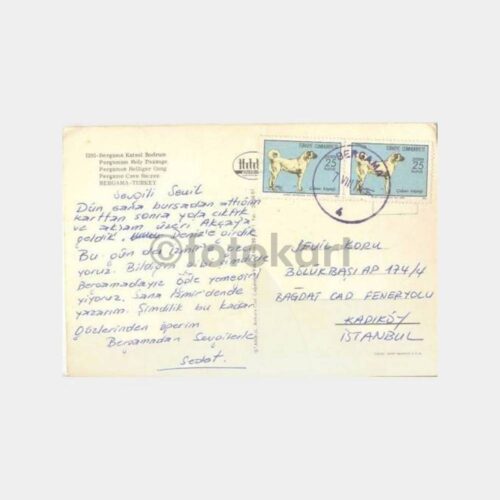 1210-Bergama Kutsal Bodrum
Pergamon Holy Passage
Pergamon Heiliger Gang
Pergame Cave Sacree
BERGAMA-TURKEY
Hitit
TÜRKİYE CUMHURİYETİ
25
Çoban köpeği
TÜRKİYE CUMHURİYETİ
25
Çoban köpeği
BERGAMA
4
Sevgili Sevil
Dün sana bursadan attığım
karttan sonra yola çıktık
ve akşam üzeri Akçaya
geldik. Denize girdik
Bu gün de izmire
yoruz. Bildiğin
Bergamadayız öğle yemeğini
yiyoruz. Sana İzmir'dende
yazarım. Şimdilik bu kadar
Gözlerinden öperim
Bergamadan Sevgilerle
Sedat.
©fotokart
SEVİL KORU
BÖLÜKBAŞI AP 174/4
BAĞDAT CAD FENERYOLU
KADIKÖY
İSTANBUL